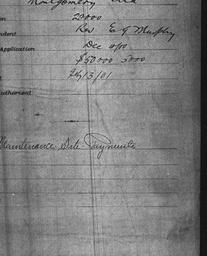 Montgomery Ala
on
20000
ndent
Rev E G Murphy
Application
Dec 9/00
$50000 5000
Feb/3/01
Authorized
Maintenance Site Payments